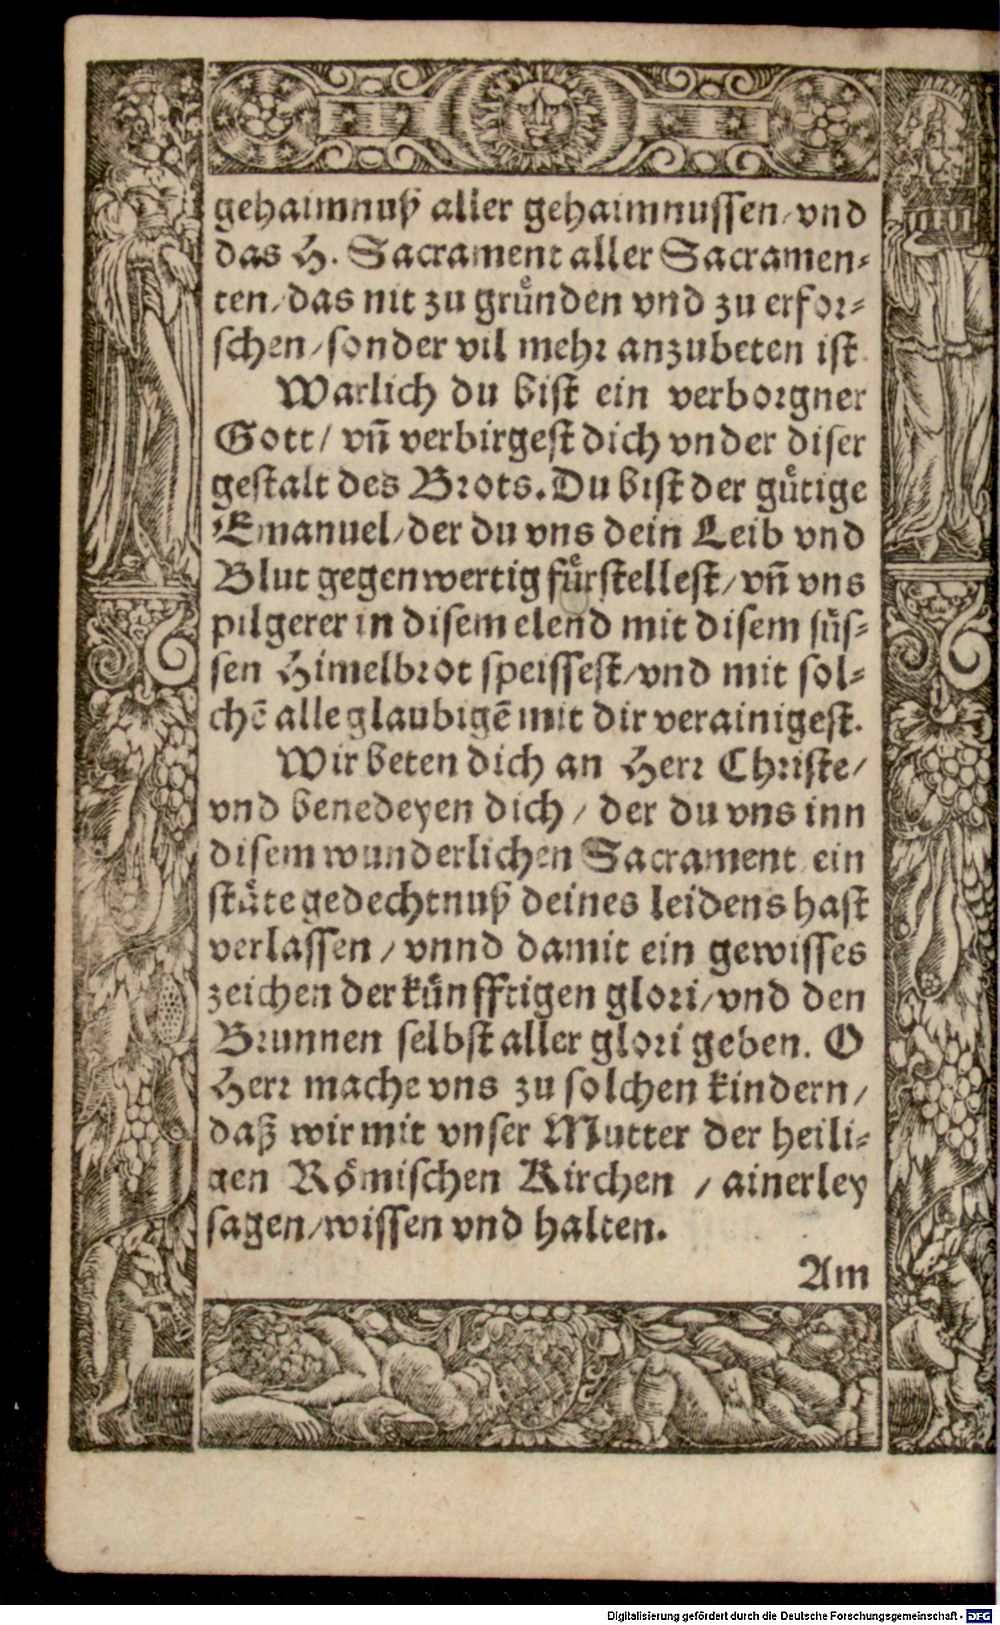 gehaimnuß aller gehaimnussen/vnd
das H. Sacrament aller Sacramen⸗
ten/das nit zu gruͤnden vnd zu erfor⸗
schen/sonder vil mehr anzubeten ist.
Warlich du bist ein verborgner
Gott/ vn̄ verbirgest dich vnder diser
gestalt des Brots. Du bist der guͤtige
Emanuel/der du vns dein Leib vnd
Blut gegenwertig fuͤrstellest/vn̄ vns
pilgerer in disem elend mit disem suͤs⸗
sen Himelbrot speissest/vnd mit sol⸗
chē alle glaubigē mit dir verainigest.
Wir beten dich an Herr Christe/
vnd benedeyen dich/ der du vns inn
disem wunderlichen Sacrament ein
staͤte gedechtnuß deines leidens hast
verlassen/ vnnd damit ein gewisses
zeichen der kuͤnfftigen glori/vnd den
Brunnen selbst aller glori geben. O
Herr mache vns zu solchen kindern/
daß wir mit vnser Mutter der heili⸗
gen Roͤmischen Kirchen / ainerley
sagen/wissen vnd halten.
Am
Digitalisierung gefördert durch die Deutsche Forschungsgemeinschaft - DFG